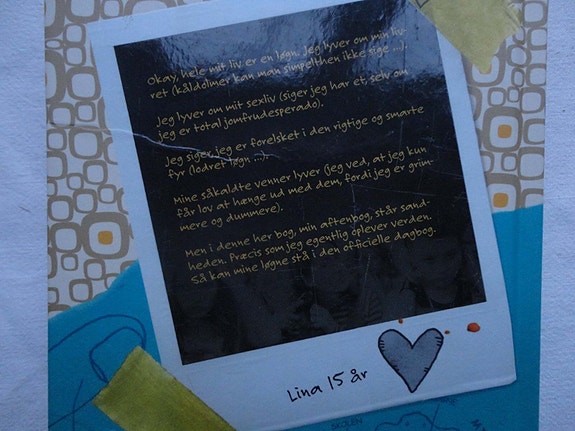 Okay, hele mit liv er en løgn. Jeg lyver om min liv-
ret (kåldolmer kan man simpelthen ikke sige ...).
Jeg lyver om mit sexliv (siger jeg har et selv om
jeg er total jomfrudesperado).
Jeg siger, jeg er forelsket i den rigtige og smarte
fyr (lodret løgn ...).
Mine såkaldte venner lyver (jeg ved, at jeg kun
får lov at hænge ud med dem, fordi jeg er grim-
mere og dummere).
Men i denne her bog, min aftenbog, står sand-
heden. Præcis som jeg egentlig oplever verden.
Så kan mine løgne stå i den officielle dagbog.
Lina 15 år
SKOLEN